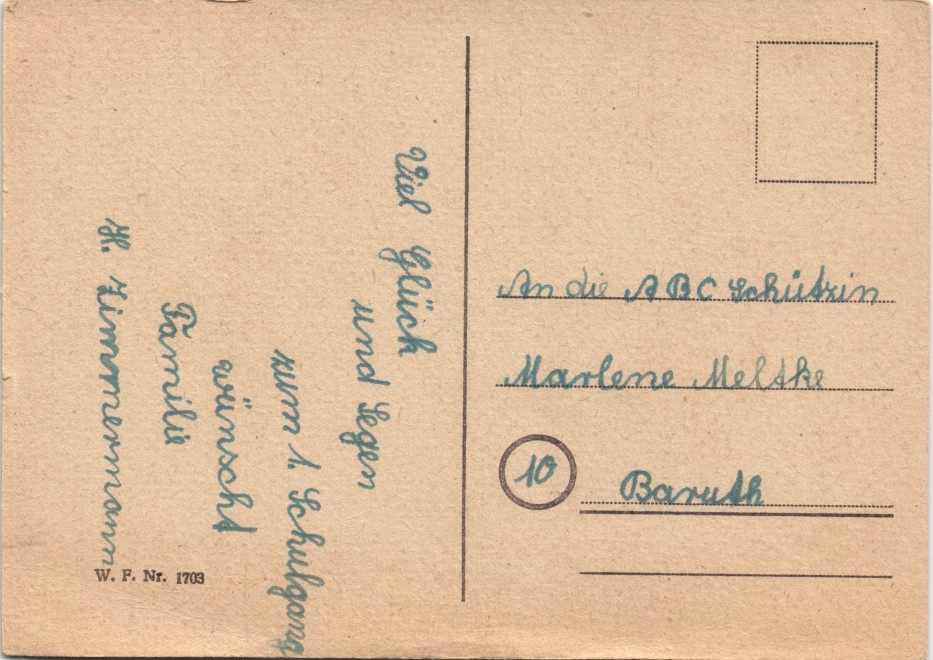 Viel Glück
und Segen
zum 1. Schulgang
wünscht
Familie
H. Zimmermann
W. F. Nr. 1703
An die ABC Schützin
Marlene Meltke
10 Baruth